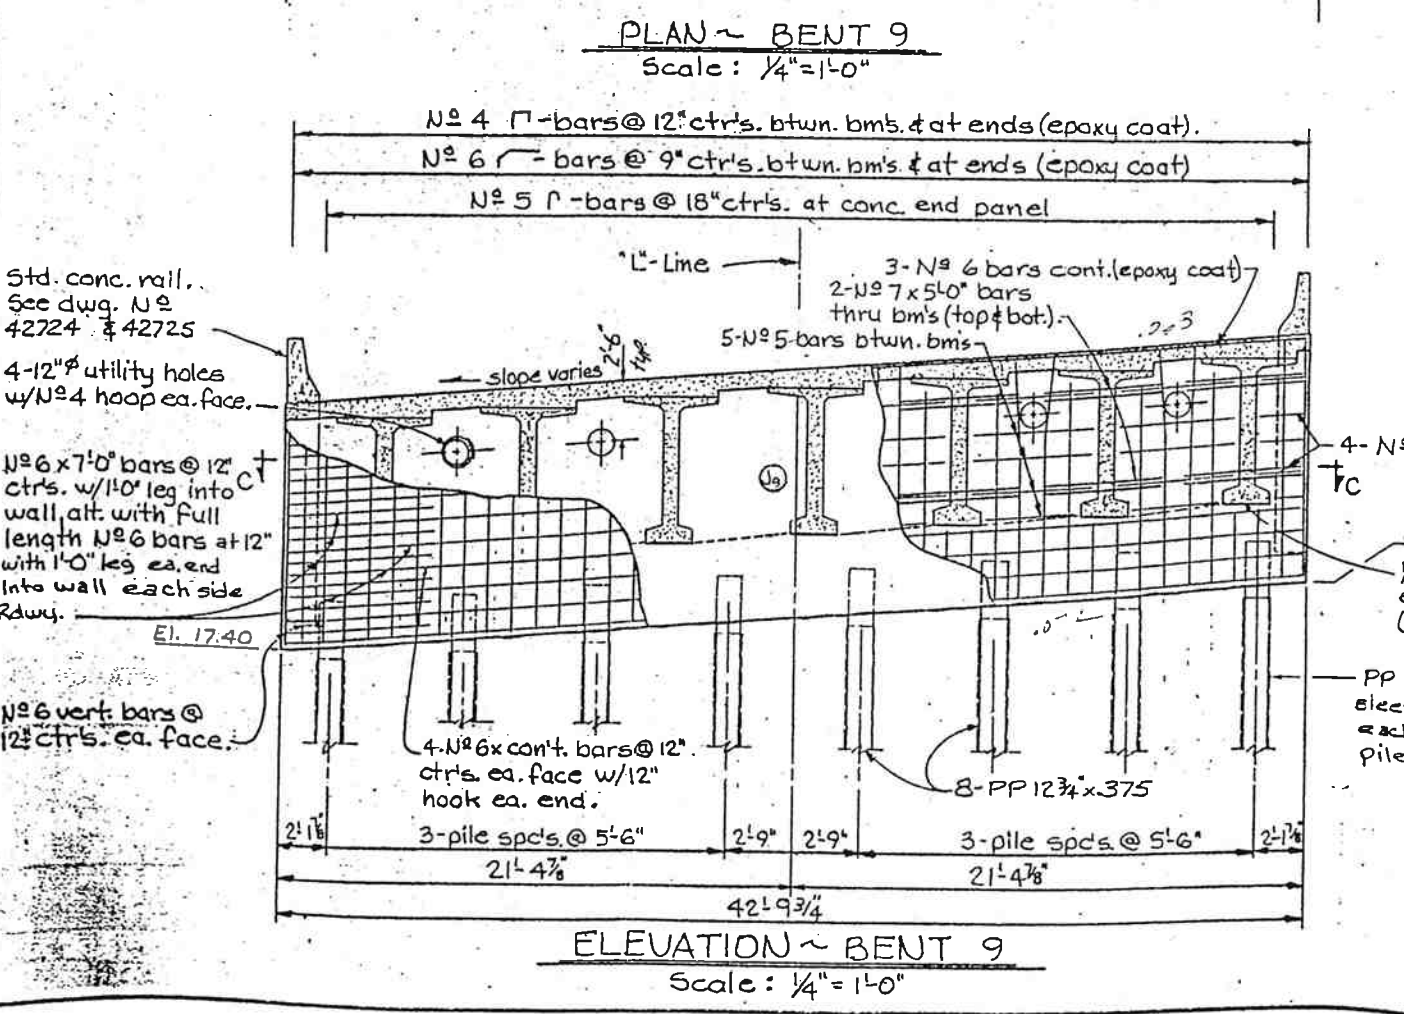 PLAN ~ BENT 9
Scale: 1/4"=1'-0"
Nº 4 ┌┐-bars @ 12" ctr's. btwn. bm's. & at ends (epoxy coat).
Nº 6 ┌─ - bars @ 9" ctr's. btwn. bm's. & at ends (epoxy coat)
Nº 5 ┌┐-bars @ 18" ctr's. at conc. end panel
"L"-Line
3-Nº 6 bars cont. (epoxy coat)
2-Nº 7 x 5'-0" bars
thru bm's (top & bot.).
5-Nº 5 bars btwn. bms
Std. conc. rail.
See dwg. Nº
42724 & 42725
2'-6"
typ.
slope varies
4-12"ø utility holes
w/Nº 4 hoop ea. face.
Nº 6 x 7'-0" bars @ 12"
ctr's. w/1'-0" leg into
wall, alt. with full
length Nº 6 bars at 12"
with 1'-0" leg ea. end
into wall each side
Rdwy.
C
C
4- Nº
El. 17.40
Nº 6 vert. bars @
12" ctr's. ea. face.
4-Nº 6 x con't. bars @ 12"
ctr's. ea. face w/12"
hook ea. end.
8-PP 12 3/4" x .375
PP
each
Pile
2'-1 7/8"
3-pile spc's. @ 5'-6"
2'-9"
2'-9"
3-pile spc's. @ 5'-6"
2'-1 7/8"
21'-4 7/8"
21'-4 7/8"
42'-9 3/4"
ELEVATION ~ BENT 9
Scale: 1/4" = 1'-0"